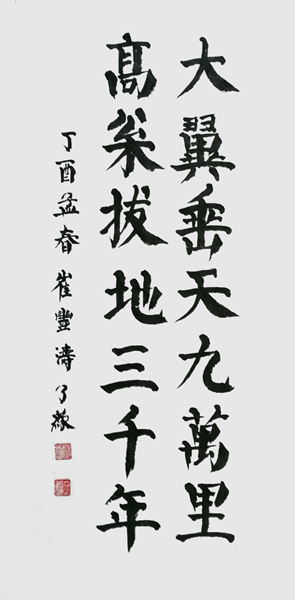 大翼垂天九萬里
髙枀拔地三千年
丁酉孟春崔豐濤